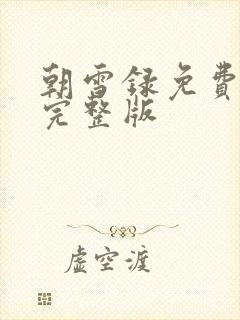 朝雪録免費
完整版
虚空渡